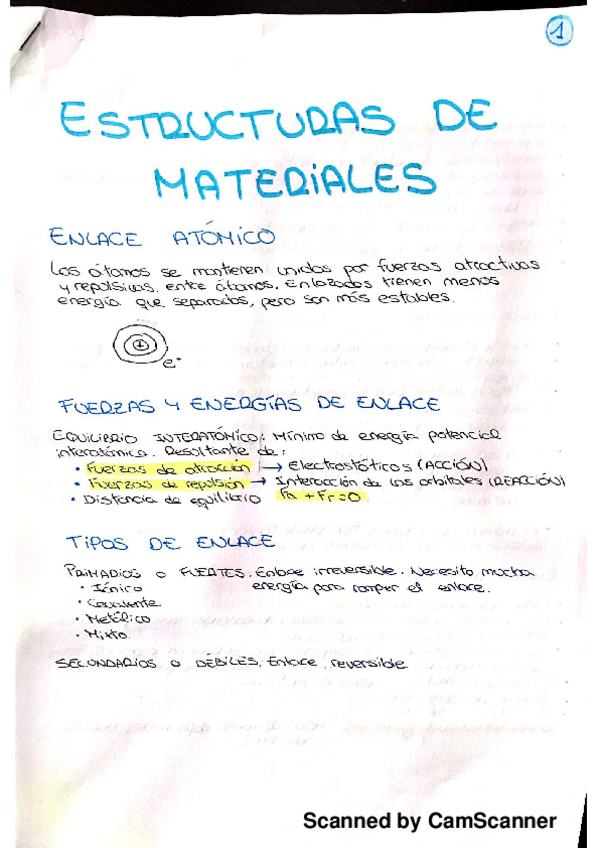 1
ESTRUCTURAS DE
MATERIALES
ENLACE ATÓMICO
Los átomos se mantienen unidos por fuerzas atractivas
y repulsivas entre átomos. Enlazados tienen menos
energía que separados, pero son más estables.
+
e-
FUERZAS Y ENERGÍAS DE ENLACE
EQUILIBRIO INTERATÓMICO: Mínimo de energía potencial
interatómica. Resultante de:
• Fuerzas de atracción → Electrostáticas (ACCIÓN)
• Fuerzas de repulsión → Interacción de los orbitales (REACCIÓN)
• Distancia de equilibrio Fa + Fr = 0
TIPOS DE ENLACE
PRIMARIOS o FUERTES. Enlace irreversible. Necesito mucha
energía para romper el enlace.
• Iónico
• Covalente
• Metálico
• Mixto.
SECUNDARIOS o DÉBILES. Enlace reversible
Scanned by CamScanner